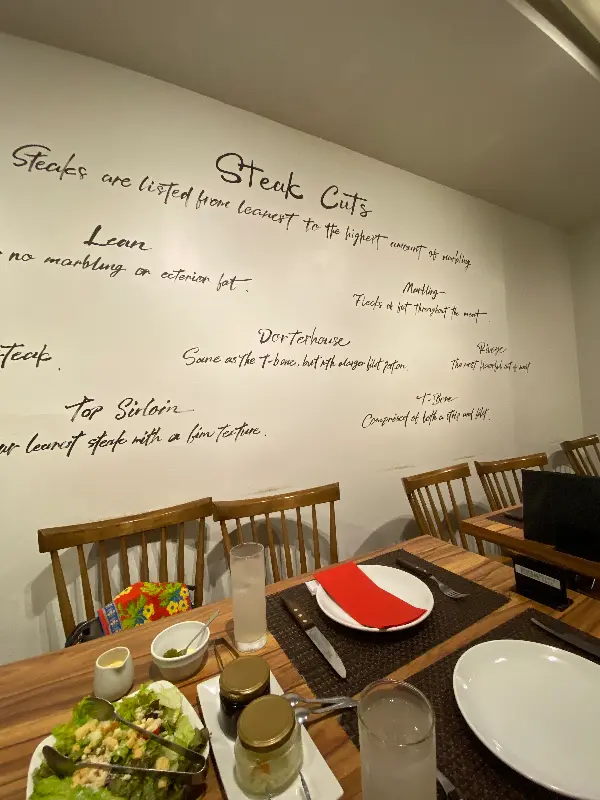 Steak Cuts
Steaks are listed from leanest to the highest amount of marbling
Lean
no marbling or exterior fat.
Marbling
Flecks of fat throughout the meat.
Teak.
Dorterhouse
Same as the T-bone, but with a larger filet portion.
Ribeye
The most flavorful cut of meat
Top Sirloin
ur leanest steak with a firm texture.
T-Bone
Comprised of both a strip and filet.